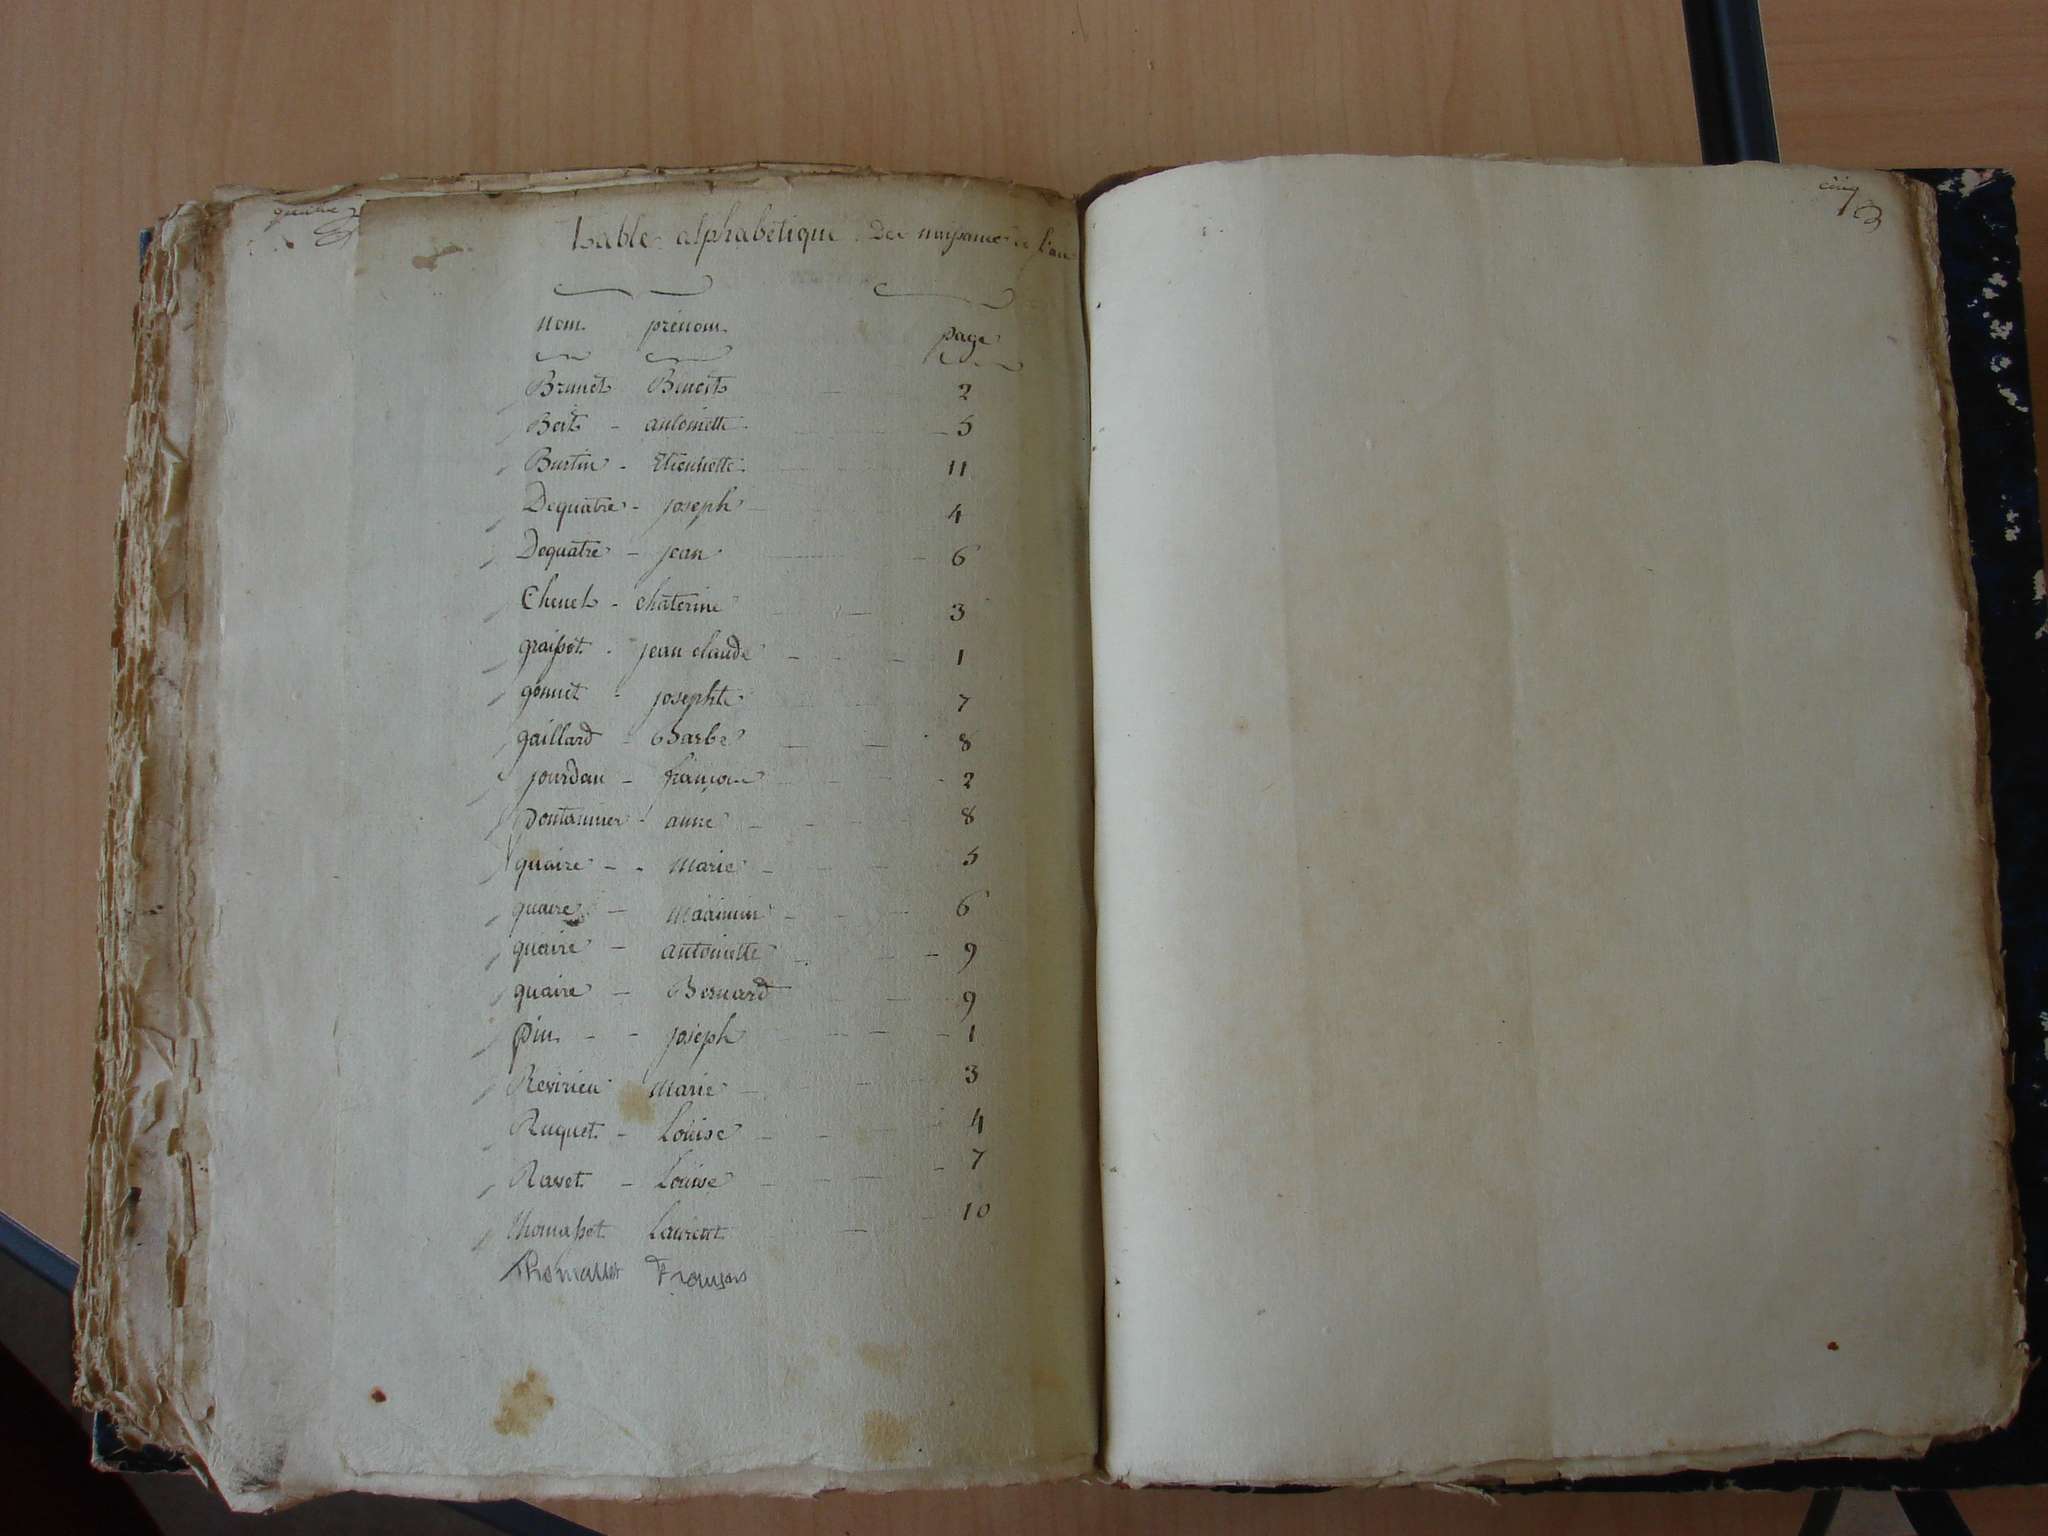 quatre
cinq
Table alphabetique Des naissances de l'an
Nom prénom page
Brunet Benoit 2
Boit - antoinette - 5
Burtin - Etiennette 11
Dequatre - joseph 4
Dequatre - jean - 6
Chenet - Chaterine 3
graisset - jean claude 1
gonnet - josephte 7
gaillard - Barbe 8
jourdan - françoise 2
pontannier - anne 8
quaire - - Marie 5
quaire - Maximin 6
quaire - antoinette - 9
quaire - Bernard 9
pin - - joseph - 1
Revirieu Marie 3
Ruquet - Louise 4
Ravet - Louise - 7
thomasset Laurent 10
Thomasset François